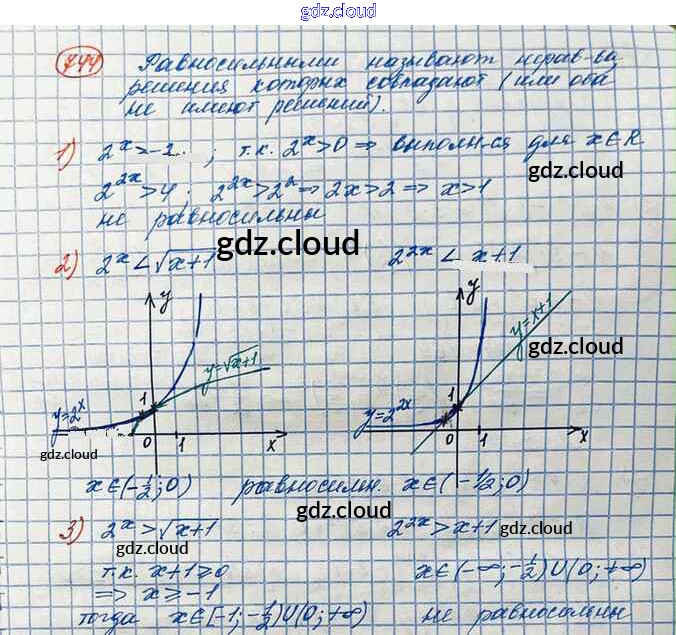 gdz.cloud
744 Равносильными называют нерав-ва
решения которых совпадают (или оба
не имеют решений).
1) 2^x > -2 ; т.к. 2^x > 0 ⇒ выполн-ся для x∈R
2^{2x} > 4 ; 2^{2x} > 2^2 ⇒ 2x > 2 ⇒ x > 1
не равносильны
gdz.cloud
gdz.cloud
2) 2^x < √(x+1) 2^{2x} < x+1
y y
y=√(x+1) y=x+1
gdz.cloud gdz.cloud
y=2^x 1 y=2^{2x} 1
0 1 x 0 1 x
gdz.cloud gdz.cloud
x∈(-1/2; 0) равносильн. x∈(-1/2; 0)
3) 2^x > √(x+1) 2^{2x} > x+1
gdz.cloud
gdz.cloud
т.к. x+1 ⩾ 0 x∈(-∞; -1/2)∪(0; +∞)
⇒ x ⩾ -1
gdz.cloud
тогда x∈[-1; -1/2)∪(0; +∞) не равносильны
gdz.cloud